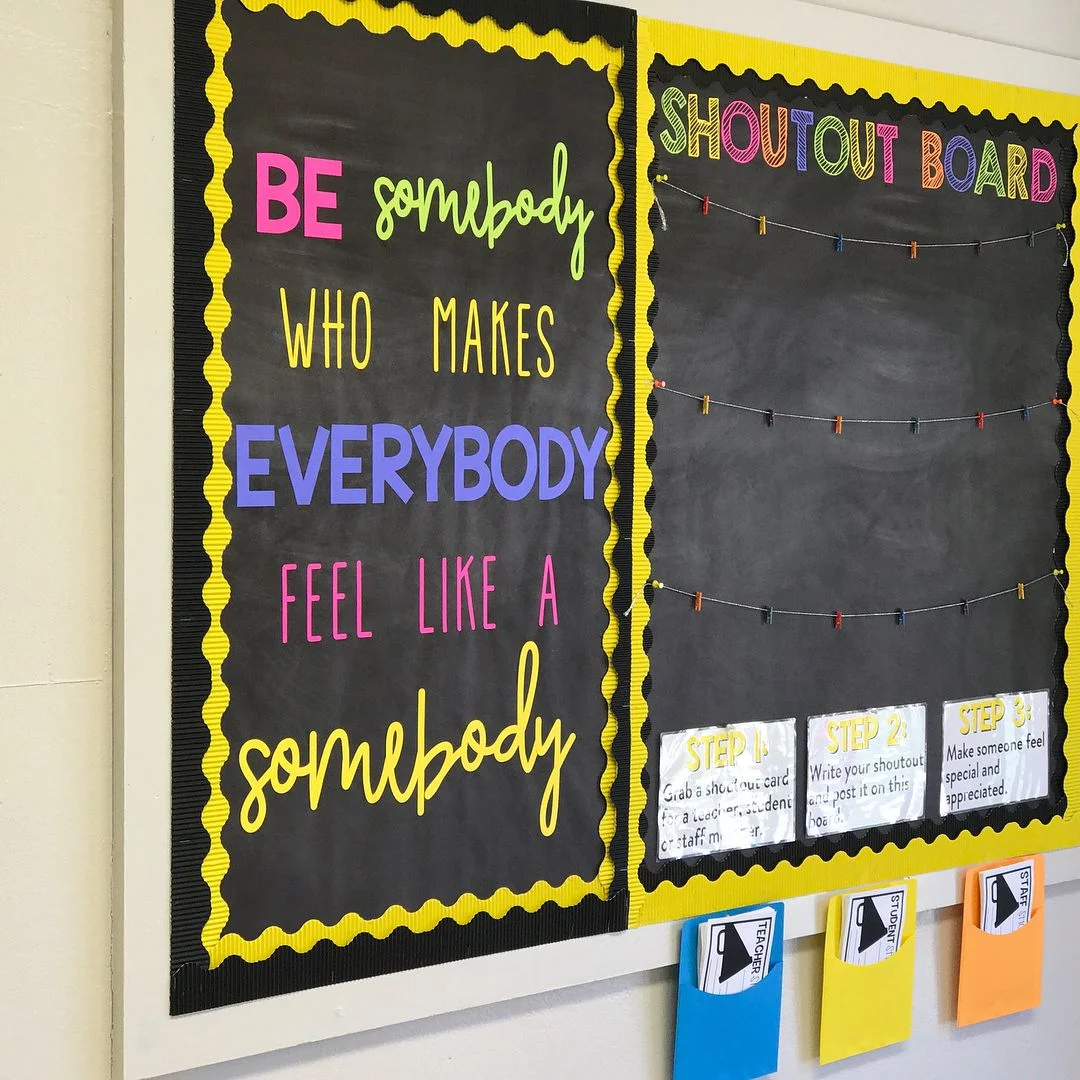 BE somebody
WHO MAKES
EVERYBODY
FEEL LIKE A
somebody
SHOUTOUT BOARD
STEP 1:
Grab a shoutout card
for a teacher, student
or staff member.
STEP 2:
Write your shoutout
and post it on this
board.
STEP 3:
Make someone feel
special and
appreciated.
TEACHER
STUDENT
STAFF